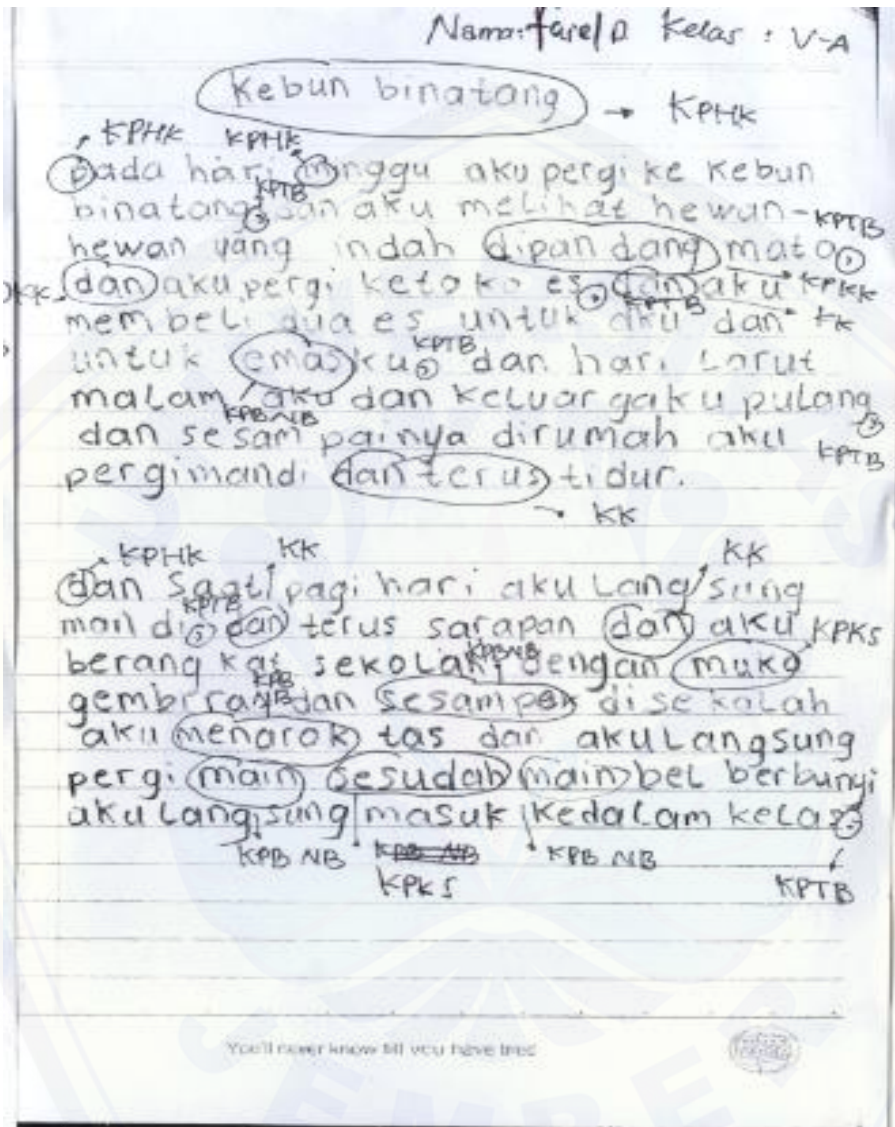 Nama: farel D Kelas : V-A
Kebun binatang → KPHK
KPHK KPHK
pada hari minggu aku pergi ke Kebun
KPTB
binatang dan aku melihat hewan- KPTB
hewan yang indah dipandang mata
dan aku pergi ketoko es dan aku KPKK
KPTB KK
membeli dua es untuk aku dan
KPTB
untuk emasku dan hari Larut
malam aku dan keluargaku pulang
KPB NB
dan sesampainya dirumah aku KPTB
pergimandi dan terus tidur.
KK
KPHK KK KK
dan saat pagi hari aku Langsung
KPTB
mandi dan terus sarapan dan aku KPKS
berangkat sekolah dengan muka
KPB NB KPB NB
gembira dan sesampek disekolah
aku menarok tas dan aku Langsung
pergi main sesudah main beL berbunyi
aku Langsung masuk kedalam kelas
KPB NB KPB NB
KPKS KPTB
You'll never know till you have tried